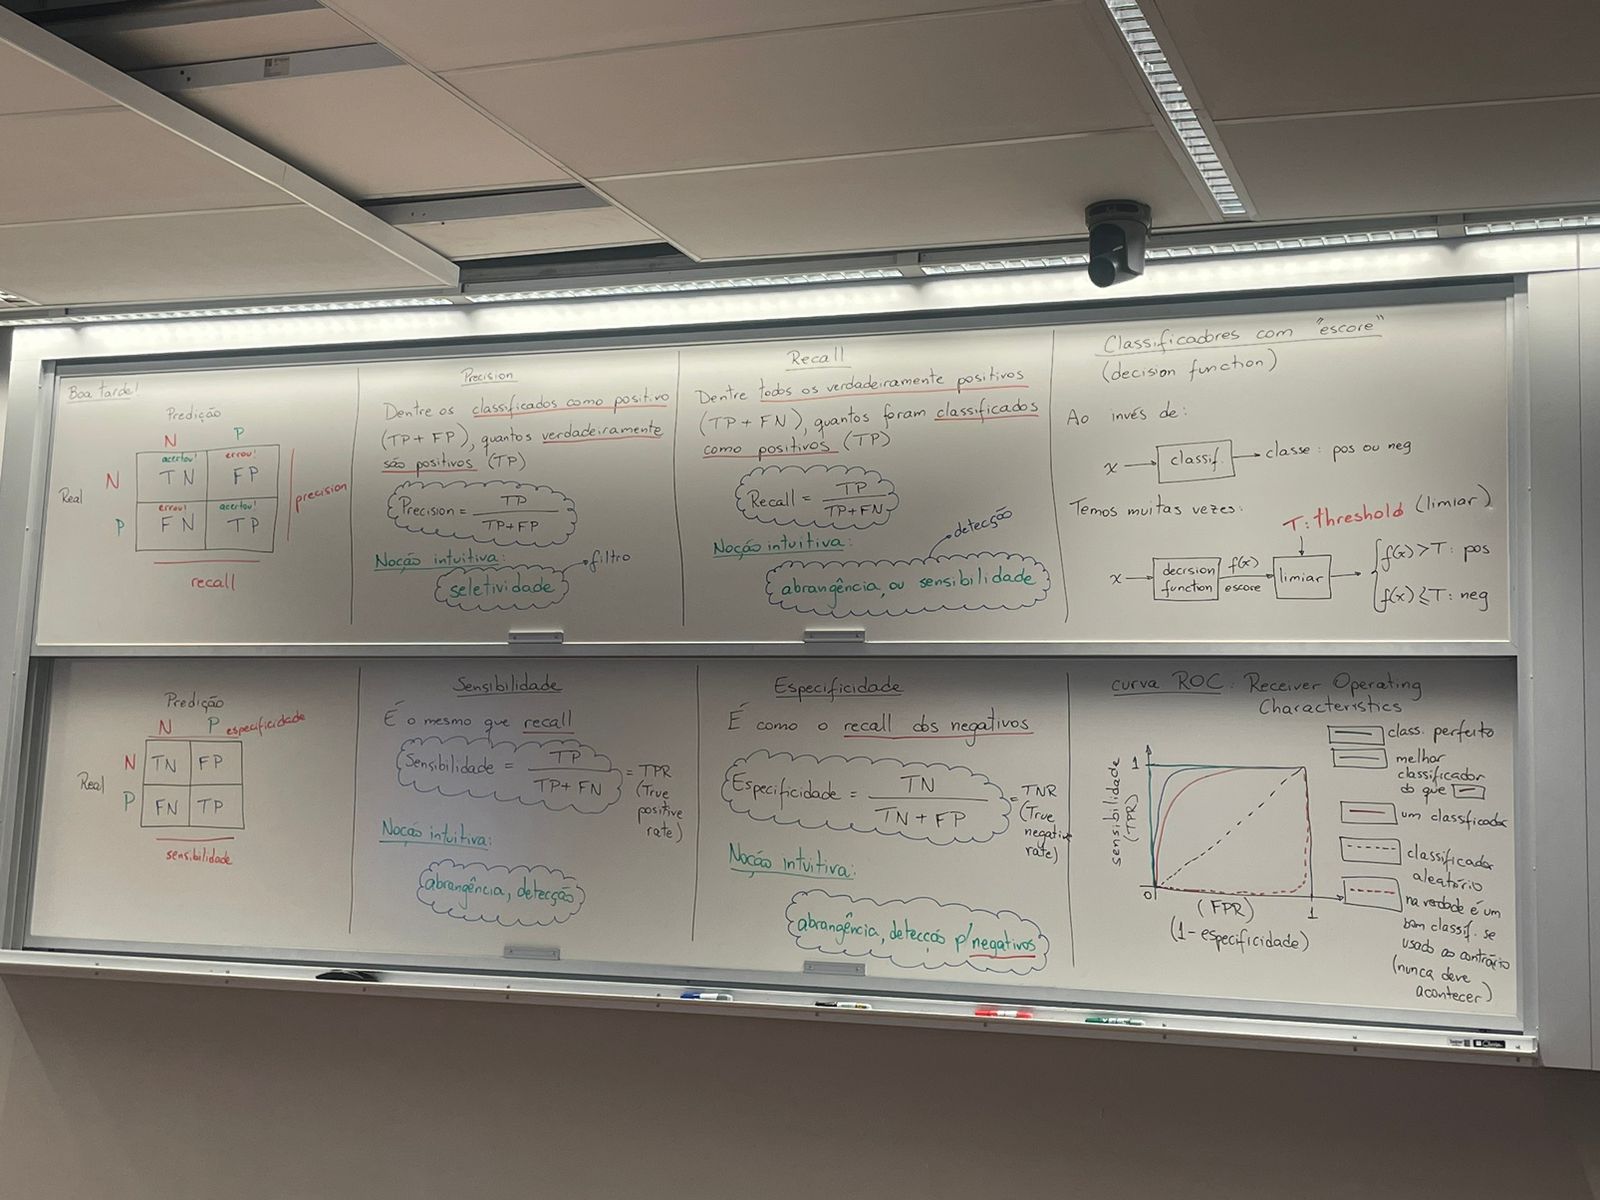 Boa tarde!
Predição
N P
acertou! errou!
Real N TN FP
errou! acertou!
P FN TP
precision
recall
Precision
Dentre os classificados como positivo
(TP + FP), quantos verdadeiramente
são positivos (TP)
Precision = TP
TP+FP
Noção intuitiva:
filtro
seletividade
Recall
Dentre todos os verdadeiramente positivos
(TP + FN), quantos foram classificados
como positivos (TP)
Recall = TP
TP+FN
Noção intuitiva:
detecção
abrangência, ou sensibilidade
Classificadores com "escore"
(decision function)
Ao invés de:
x classif. classe: pos ou neg
Temos muitas vezes:
T: threshold (limiar)
x decision function f(x) escore limiar
f(x) > T: pos
f(x) ≤ T: neg
Predição
N P
especificidade
Real N TN FP
P FN TP
sensibilidade
Sensibilidade
É o mesmo que recall
Sensibilidade = TP
TP + FN
= TPR
(True
positive
rate)
Noção intuitiva:
abrangência, detecção
Especificidade
É como o recall dos negativos
Especificidade = TN
TN + FP
= TNR
(True
negative
rate)
Noção intuitiva:
abrangência, detecção p/ negativos
curva ROC: Receiver Operating
Characteristics
sensibilidade
(TPR)
1
0
1
(FPR)
(1 - especificidade)
class. perfeito
melhor
classificador
do que
um classificador
classificador
aleatório
na verdade é um
bom classif. se
usado ao contrário
(nunca deve
acontecer)